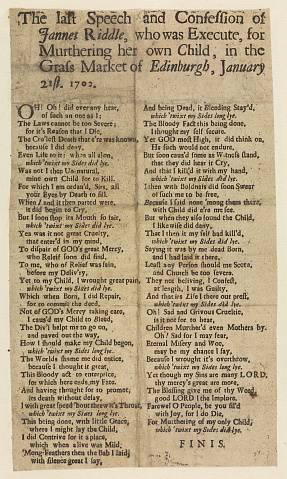 The last Speech and Confession of
Jannet Riddle, who was Execute, for
Murthering her own Child, in the
Grass Market of Edinburgh, January
21st. 1702.
OH! Oh! did ever any hear,
of such an one as I;
The Laws cannot be too Severe;
for it's Reason that I Die,
The Cruelest Death that e're was known
because I did deny,
Even Life to it: when all alone,
which 'twixt my Sides did lye.
Was not I thus Unnatural,
mine own Child for to Kill.
For which I am ordean'd, Sirs, all
your Eyes by Death to fill.
When I and it then parted were,
it did begin to Cry,
But I soon stopt its Mouth so fair,
which 'twixt my Sides long lye.
Yea was it not great Cruelty,
that enter'd in my mind,
To dispair of GOD's great Mercy,
who Releif soon did find.
To me, who of Releif was fain,
before my Deliv'ry,
Yet to my Child, I wrought great pain,
which 'twixt my Sides did lye.
Which when Born, I did Repair,
for to commit the deed,
Not of GOD's Mercy taking care,
I caus'd my Child to Bleed,
The Div'l helpt me to go on,
and paved out the way,
How I should make my Child begon,
which 'twixt my Sides did lye.
The Worlds shame me did entice,
because I thought it great,
This Bloody act to enterprize,
for which here ends my Fate.
And having thought for to promote,
its death without delay,
I with great speed 'bout threw it's Throat,
which 'twixt my Sides long lye.
This being done, with little Grace,
where I might lay the Child,
I did Contrive for it a place,
which when alive was Mild,
'Mong-Feathers then the Bab I laid;
with silence great I say,
And being Dead, it Bleeding Stay'd,
which 'twixt my Sides long lye.
The Bloody Fact this being done,
I thought my self secure,
Yet GOD most High, it did think on,
He such would not endure.
But soon caus'd some as Witness stand,
that they did hear it Cry,
And that I kill'd it with my hand,
which 'twixt my Sides did lye.
I then with Boldness did soon Swear
of such me to be free,
Because I said none 'mong them there,
with Child did e're me see.
But when they also found the Child,
I likewise did deny,
That I then it my self had kill'd,
which 'twixt my Sides did lye.
Saying it was by me dead Born,
and I had laid it there,
Least any Person should me Scorn,
and Church be too severe.
They not believing, I Confest,
at length, I was Guilty,
And that its Life I there out prest,
which 'twixt my Sides did lye.
Oh! Sad and Grivous Cruelty,
is it not so to hear,
Children Murther'd even Mothers by.
Oh? Sad for I may fear,
Eternal Misery and Woe,
may be my chance I say,
Because I wrought it's overthrow,
which 'twixt my Sides long lye.
Yet though my Sins are many LORD,
thy mercy's great are more,
The Blessing give me of thy Word,
good LORD I the Implore.
Farewel O People, be you fill'd
with Joy, for I do Die,
For Murthering of my only Child,
which 'twixt my Sides did lye.
FINIS.